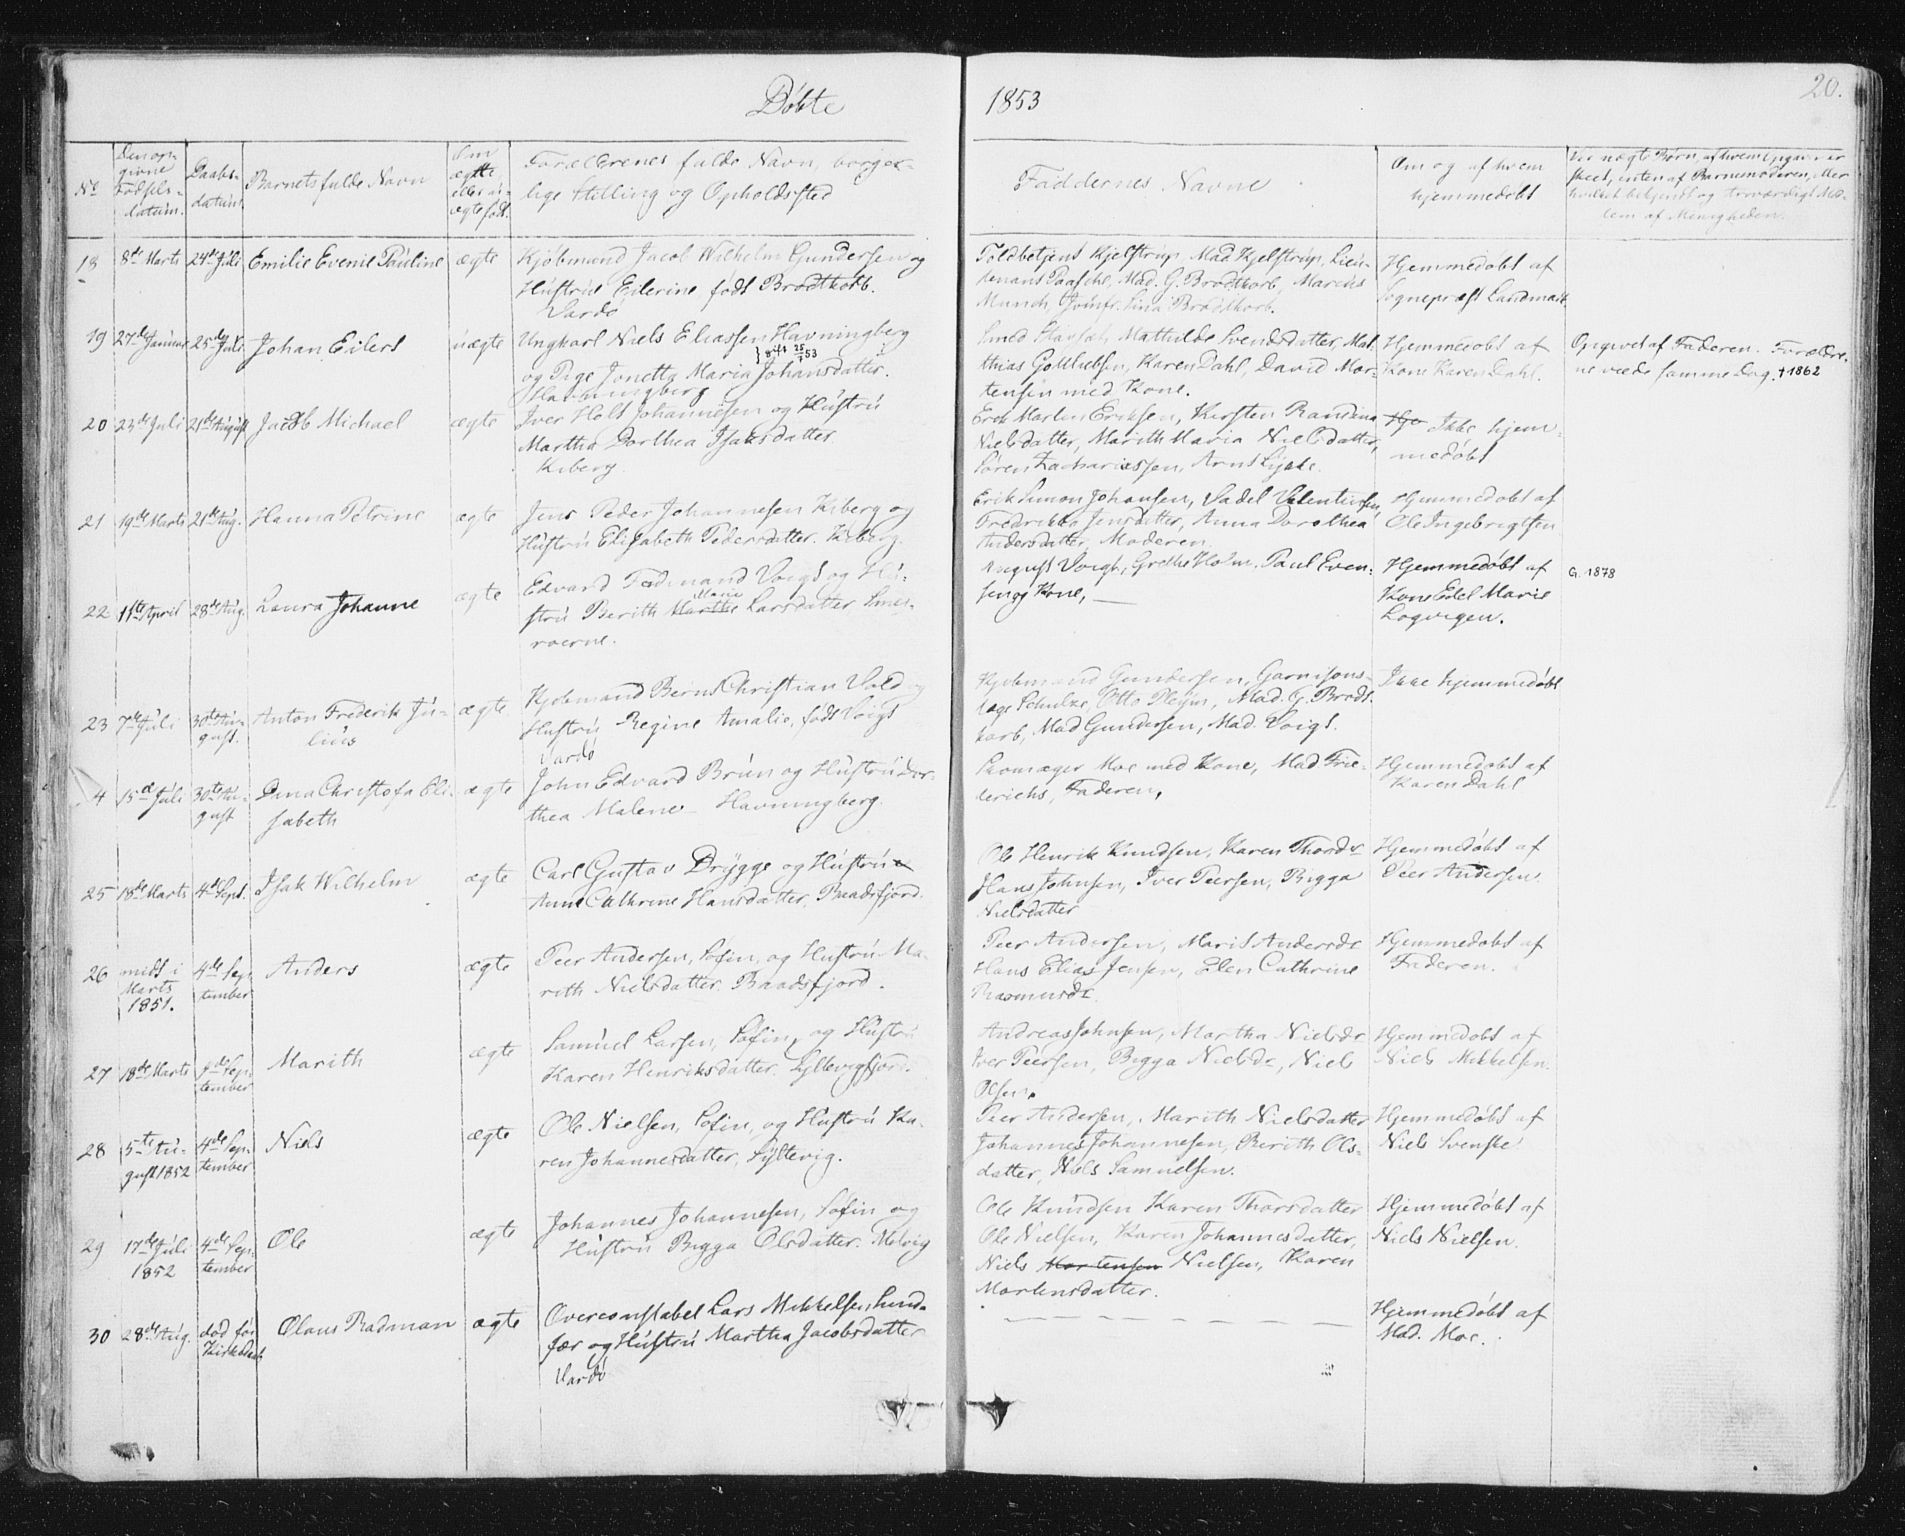 Døbte 1853
20.
No
Den op-
givne
Fødsels-
datum.
Daabs-
datum
Barnets fulde Navn
Om
ægte
eller u-
ægte født.
Forældrenes fulde Navn, borger-
lige Stilling og Opholdssted
Faddernes Navne
Om og af hvem
hjemmedøbt
Ved uægte Børn, af hvem Opgaven er
skeet, enten af Barnemoderen, eller
hvilket bekjendt og troværdigt Med-
lem af Menigheden.
18
8de Marts
24de Juli
Emilie Evenie Pauline
ægte
Kjøbmand Jacob Wilhelm Gundersen og
Hustrue Eilerine født Brodtkorb.
Vardø
Toldbetjent Kjelstrup, Mad Kjelstrup, Lieu-
tenant Paasche, Mad. G. Brodtkorb, Marcus
Munch, Jomfr. Lina Brodtkorb.
Hjemmedøbt af
Sognepræst Landmark
19
27de Januar
25de Juli
Johan Eilert
uægte
Ungkarl Niels Eliassen Havningberg
} gift 25/7 53
og Pige Jonetta Maria Johansdatter.
Havningberg
Smed Mathilde Svendsdatter, Mat-
thias Gottliebsen, Karen Dahl, David Mor-
tensen med Kone.
Hjemmedøbt af
Kone Karen Dahl.
Opgivet af Faderen. Forældre-
ne viede samme Dag. † 1862
20
23de Juli
21de August
Jacob Michael
ægte
Iver Holt Johannesen og Hustru
Martha Dorthea Isaksdatter
Kiberg.
Erek Morten Eriksen, Kirsten Randina
Nielsdatter, Marith Maria Nielsdatter,
Søren Zachariassen, Arnt
Hje Ikke hjem-
medøbt
21
19de Marts
21de Aug.
Hanna Petrine
ægte
Jens Peder Johannesen Kiberg og
Hustru Elisabeth Pedersdatter. Kiberg.
Erik Simon Johansen, Sadel Valentinsen,
Fredrikka Jensdatter, Anna Dorothea
Andersdatter, Moderen.
Hjemmedøbt af
Ole Ingebrigtsen
22
11te April
28de Aug.
Laura Johanne
ægte
Edvard Ferdinand Voigt og Hu-
Marie
stru Berith Marthe Larsdatter Smel-
roerne.
August Voigt, Grethe Holm. Paul Even-
sen og Kone, —
Hjemmedøbt af
Kone Edel Marie
Logvigen.
G. 1878
23
7de Juli
30te Au-
gust.
Anton Frederik Ju-
lius
ægte
Kjøbmand Bernt Christian Vold og
Hustru Regine Amalie, født Voigt
Vardø
Kjøbmand Gundersen, Garnisons-
læge Schulze, Otto Pleym, Mad. G. Brodt-
korb, Mad Gundersen, Mad. Voigt.
Ikke hjemmedøbt
4
15de Juli
30te Au-
gust
Dina Christofa Eli-
sabeth
ægte
John Edvard Bruun og Hustru Dor-
thea Malene Havningberg.
Skomager Moe med Kone, Mad Frie-
derichs, Faderen,
Hjemmedøbt af
Karen Dahl
25
18de Marts
4de Sept.
Isak Wilhelm
ægte
Carl Gustav Drygge og Hustru
Anne Cathrine Hansdatter, Baadsfjord.
Ole Henrik Knudsen, Karen Thordr
Hans Johnsen, Iver Peersen, Bigga
Nielsdatter
Hjemmedøbt af
Peer Andersen.
26
midt i
Marts
1851.
4de Sep-
tember
Anders
ægte
Peer Andersen, Søfin, og Hustru Ma-
rith Nielsdatter. Baadsfjord.
Peer Andersen, Marit Andersdr
Hans Elias Jensen, Elen Cathrine
Rasmusdr.
Hjemmedøbt af
Faderen.
27
18de Marts
4de Sep-
tember
Marith
ægte
Samuel Larsen, Søfin, og Hustru
Karen Henriksdatter. Syltevigfjord.
Andreas Johnsen, Martha Nielsdr
Iver Peersen, Bigga Nielsdr, Niels
Olsen.
Hjemmedøbt af
Niels Mikkelsen.
28
5te Au-
gust 1852
4de Sep-
tember
Niels
ægte
Ole Nielsen, Søfin, og Hustru Ka-
ren Johannesdatter, Syltevig.
Peer Andersen, Marith Nielsdatter
Johannes Johannesen, Berith Ols-
datter, Niels Samuelsen.
Hjemmedøbt af
Niels Svenske
29
17de Juli
1852
4de Sep-
tember
Ole
ægte
Johannes Johannesen, Søfin og
Hustru Bigga Olsdatter. Molvig
Ole Knudsen Karen Thorsdatter
Ole Nielsen, Karen Johannesdatter,
Niels Mortensen Nielsen, Karen
Mortensdatter.
Hjemmedøbt af
Niels Nielsen.
30
28de Aug.
død før
Kirkedaab
Olaus Radman
ægte
Overconstabel Lars Mikkelsen Lund-
fær og Hustru Marthea Jacobsdatter
Vardø
— — — — — — —
Hjemmedøbt af
Mad. Moe.